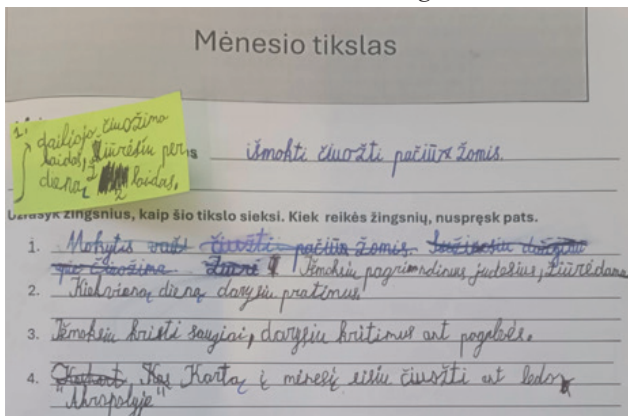 Mėnesio tikslas
1. dailiojo čiuožimo
laidas, žiūrėsiu per
dieną 2 laidas.
išmokti čiuožti pačiūžomis.
zingsnius, kaip šio tikslo sieksi. Kiek reikės žingsnių, nuspręsk pats.
1. Mokytis čiuožti pačiūžomis.
apie čiuožimą. Išmoksiu pagrindinus judesius, žiūrėdama
2. Kiekvieną dieną darysiu pratimus.
3. Išmoksiu kristi saugiai, darysiu kritimus ant pagalvės.
4. Kas Kartą į mėnesį eisiu čiuožti ant ledo
"Akropolyje"